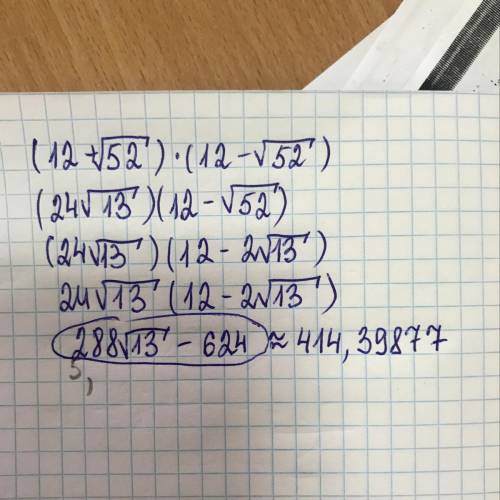 (12 + √52) · (12 - √52)
(24√13)(12 - √52)
(24√13)(12 - 2√13)
24√13 (12 - 2√13)
288√13 - 624 ≈ 414,39877
5,